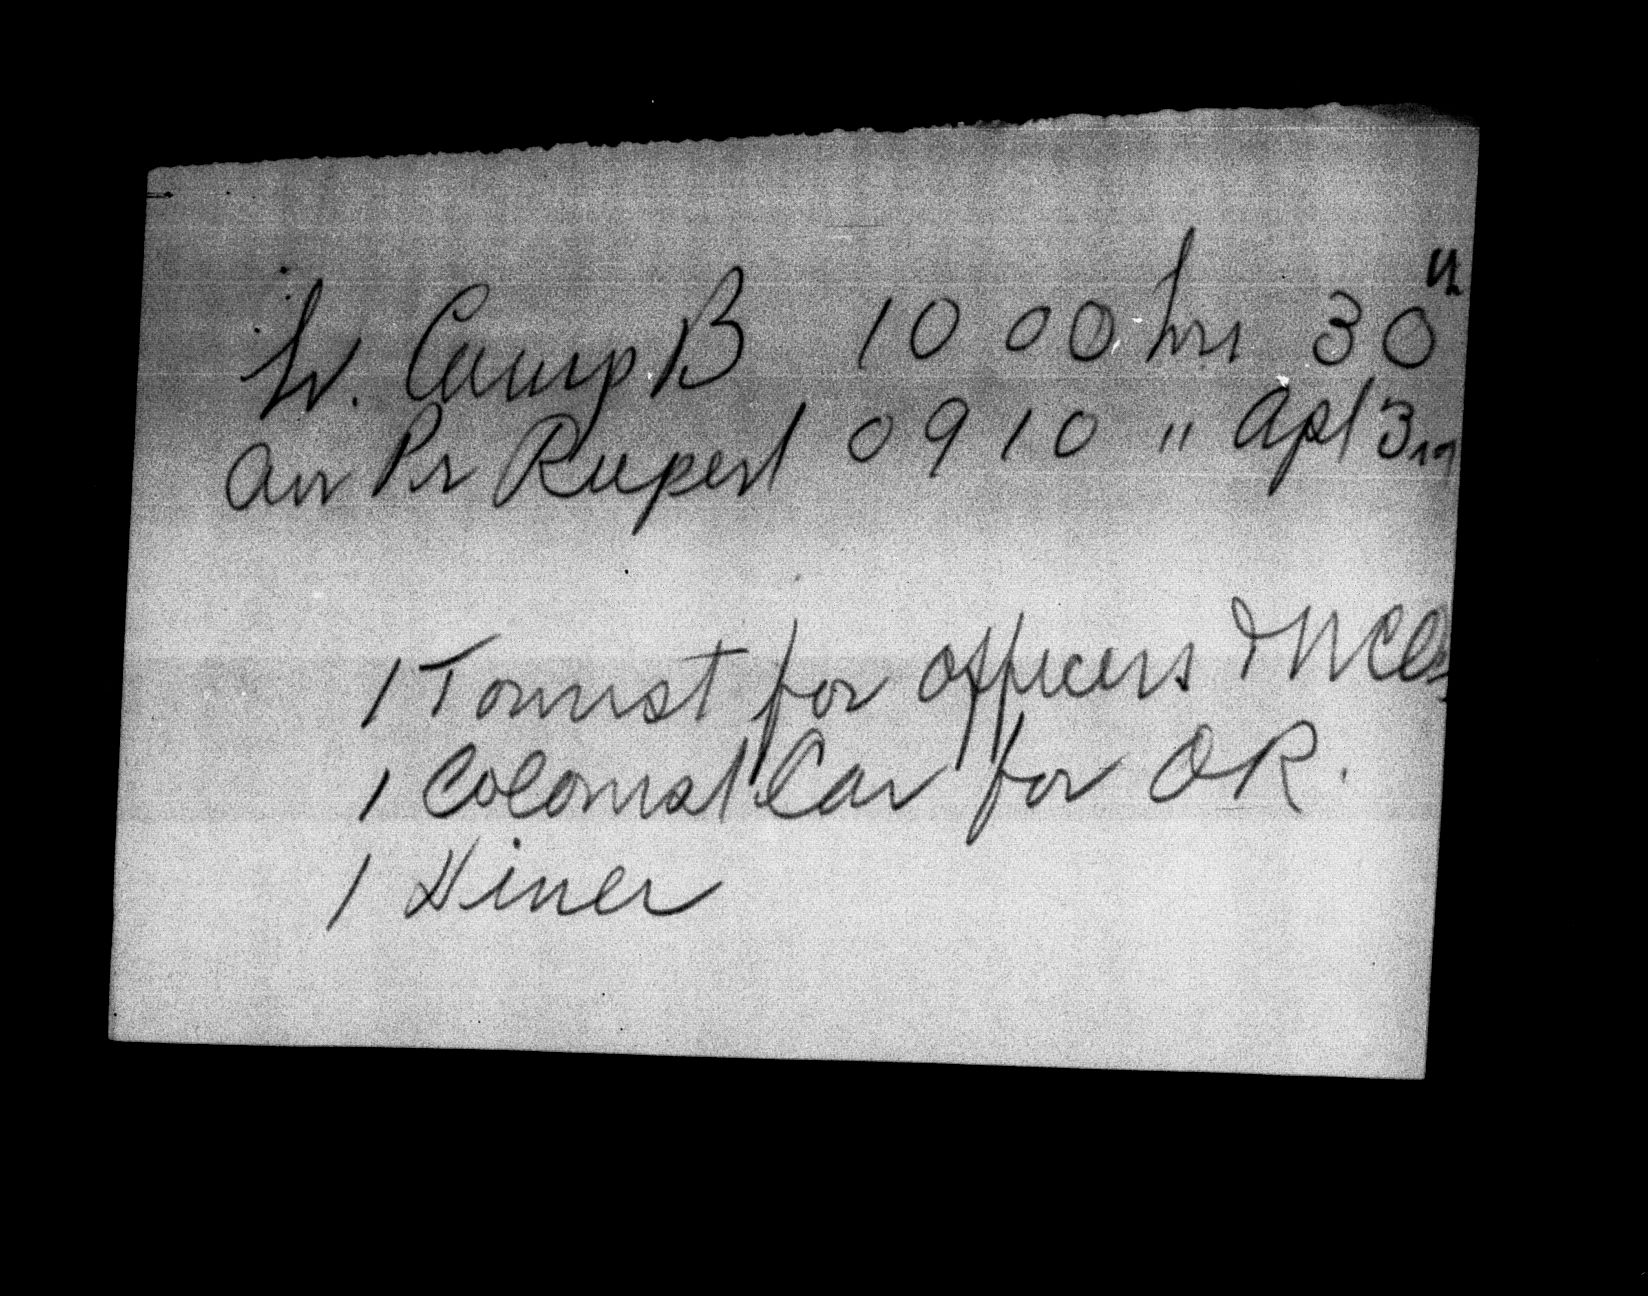 Lv. Camp B 10 00 hrs 30th
Arr Pr Rupert 0910 " Apl 3rd
1 Tourist for officers & NCOs
1 Colonist Car for OR.
1 Diner